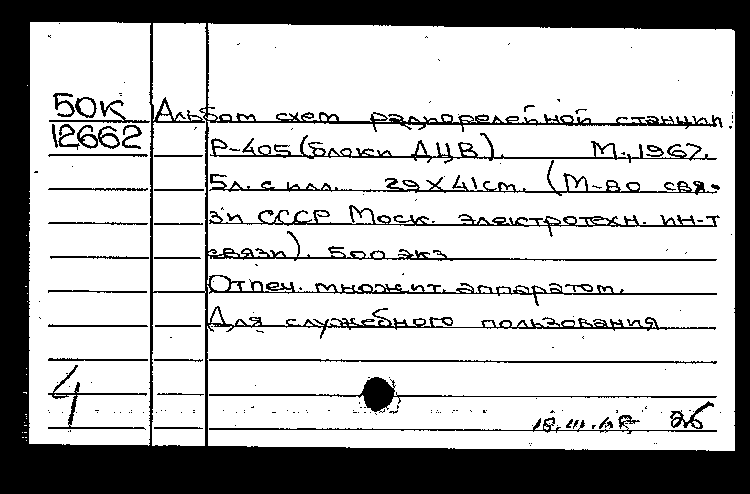 50К Альбом схем радиорелейной станции
12662 Р-405 (блоки ДЦВ). М., 1967.
5л. с илл. 29 X 41 см. (М-во свя-
зи СССР Моск. электротехн. ин-т
связи). 500 экз.
Отпеч. множит. аппаратом.
Для служебного пользования
4
18.III.68